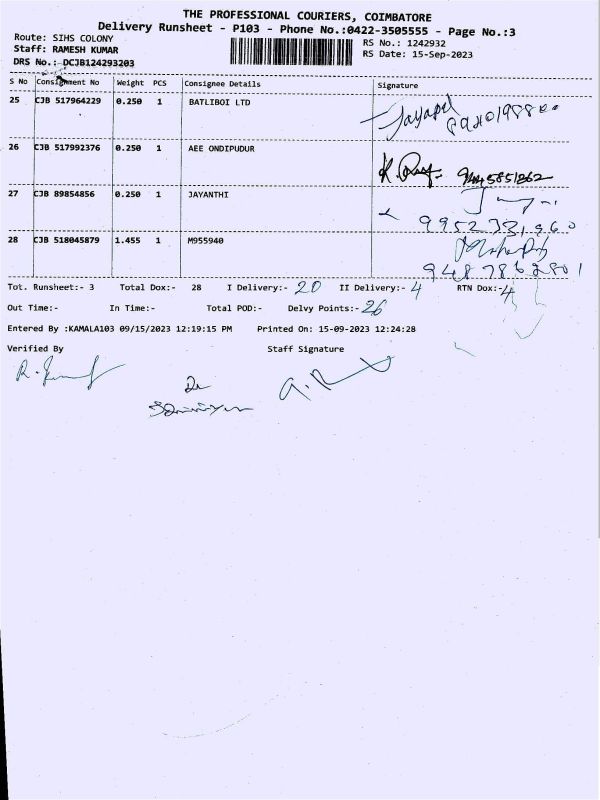 THE PROFESSIONAL COURIERS, COIMBATORE
Delivery Runsheet - P103 - Phone No.:0422-3505555 - Page No.:3
Route: SIHS COLONY
RS No.: 1242932
Staff: RAMESH KUMAR
RS Date: 15-Sep-2023
DRS No.:- DCJB124293203
S No Consignment No Weight PCS Consignee Details Signature
25 CJB 517964229 0.250 1 BATLIBOI LTD
26 CJB 517992376 0.250 1 AEE ONDIPUDUR
27 CJB 89854856 0.250 1 JAYANTHI
28 CJB 518045879 1.455 1 M955940
Tot. Runsheet:- 3 Total Dox:- 28 I Delivery:- 20 II Delivery:- 4 RTN Dox:- 4
Out Time:- In Time:- Total POD:- Delvy Points:- 26
Entered By :KAMALA103 09/15/2023 12:19:15 PM Printed On: 15-09-2023 12:24:28
Verified By Staff Signature